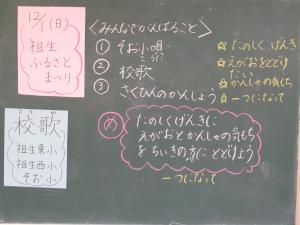 12/1(日)
祖生
ふるさと
まつり
校歌
祖生東小
祖生西小
そお小
<みんなでがんばること>
① そお小唄
② 校歌
③ さくひんのかんしょう
☆たのしくげんき
☆えがおをとどけ
たい
☆かんしゃの気もち
☆一つになって
め
たのしくげんきに
えがおとかんしゃの気もち
をちいきの方にとどけよう
一つになって